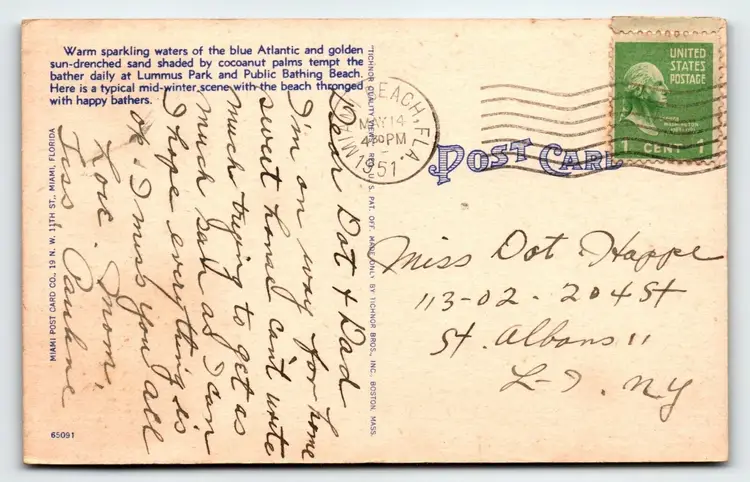 Warm sparkling waters of the blue Atlantic and golden
sun-drenched sand shaded by cocoanut palms tempt the
bather daily at Lummus Park and Public Bathing Beach.
Here is a typical mid-winter scene with the beach thronged
with happy bathers.
Dear Dot & Dad
I'm on way for home
sweet home can't write
much trying to get as
much sun as I can
I hope everything is
ok. I miss you all
Love. Mom,
Pauline
MIAMI POST CARD CO., 19 N. W. 11TH ST., MIAMI, FLORIDA
65091
"TICHNOR QUALITY VIEWS," REG. U. S. PAT. OFF. MADE ONLY BY TICHNOR BROS., INC., BOSTON, MASS.
MIAMI BEACH, FLA.
MAY 14
4 30 PM
1951
POST CARD
UNITED
STATES
POSTAGE
WASHINGTON
1 CENT 1
Miss Dot Happe
113-02. 204 St
St. Albans 11
L-I. NY